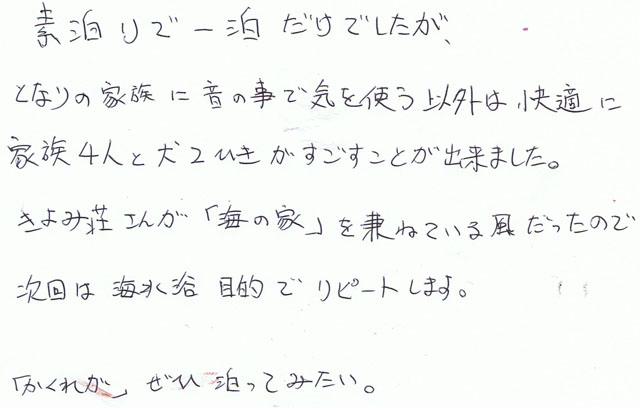 素泊りで一泊だけでしたが、
となりの家族に音の事で気を使う以外は快適に
家族4人と犬2ひきがすごすことが出来ました。
きよみ荘さんが「海の家」を兼ねている風だったので
次回は海水浴目的でリピートします。
「かくれが」ぜひ泊ってみたい。